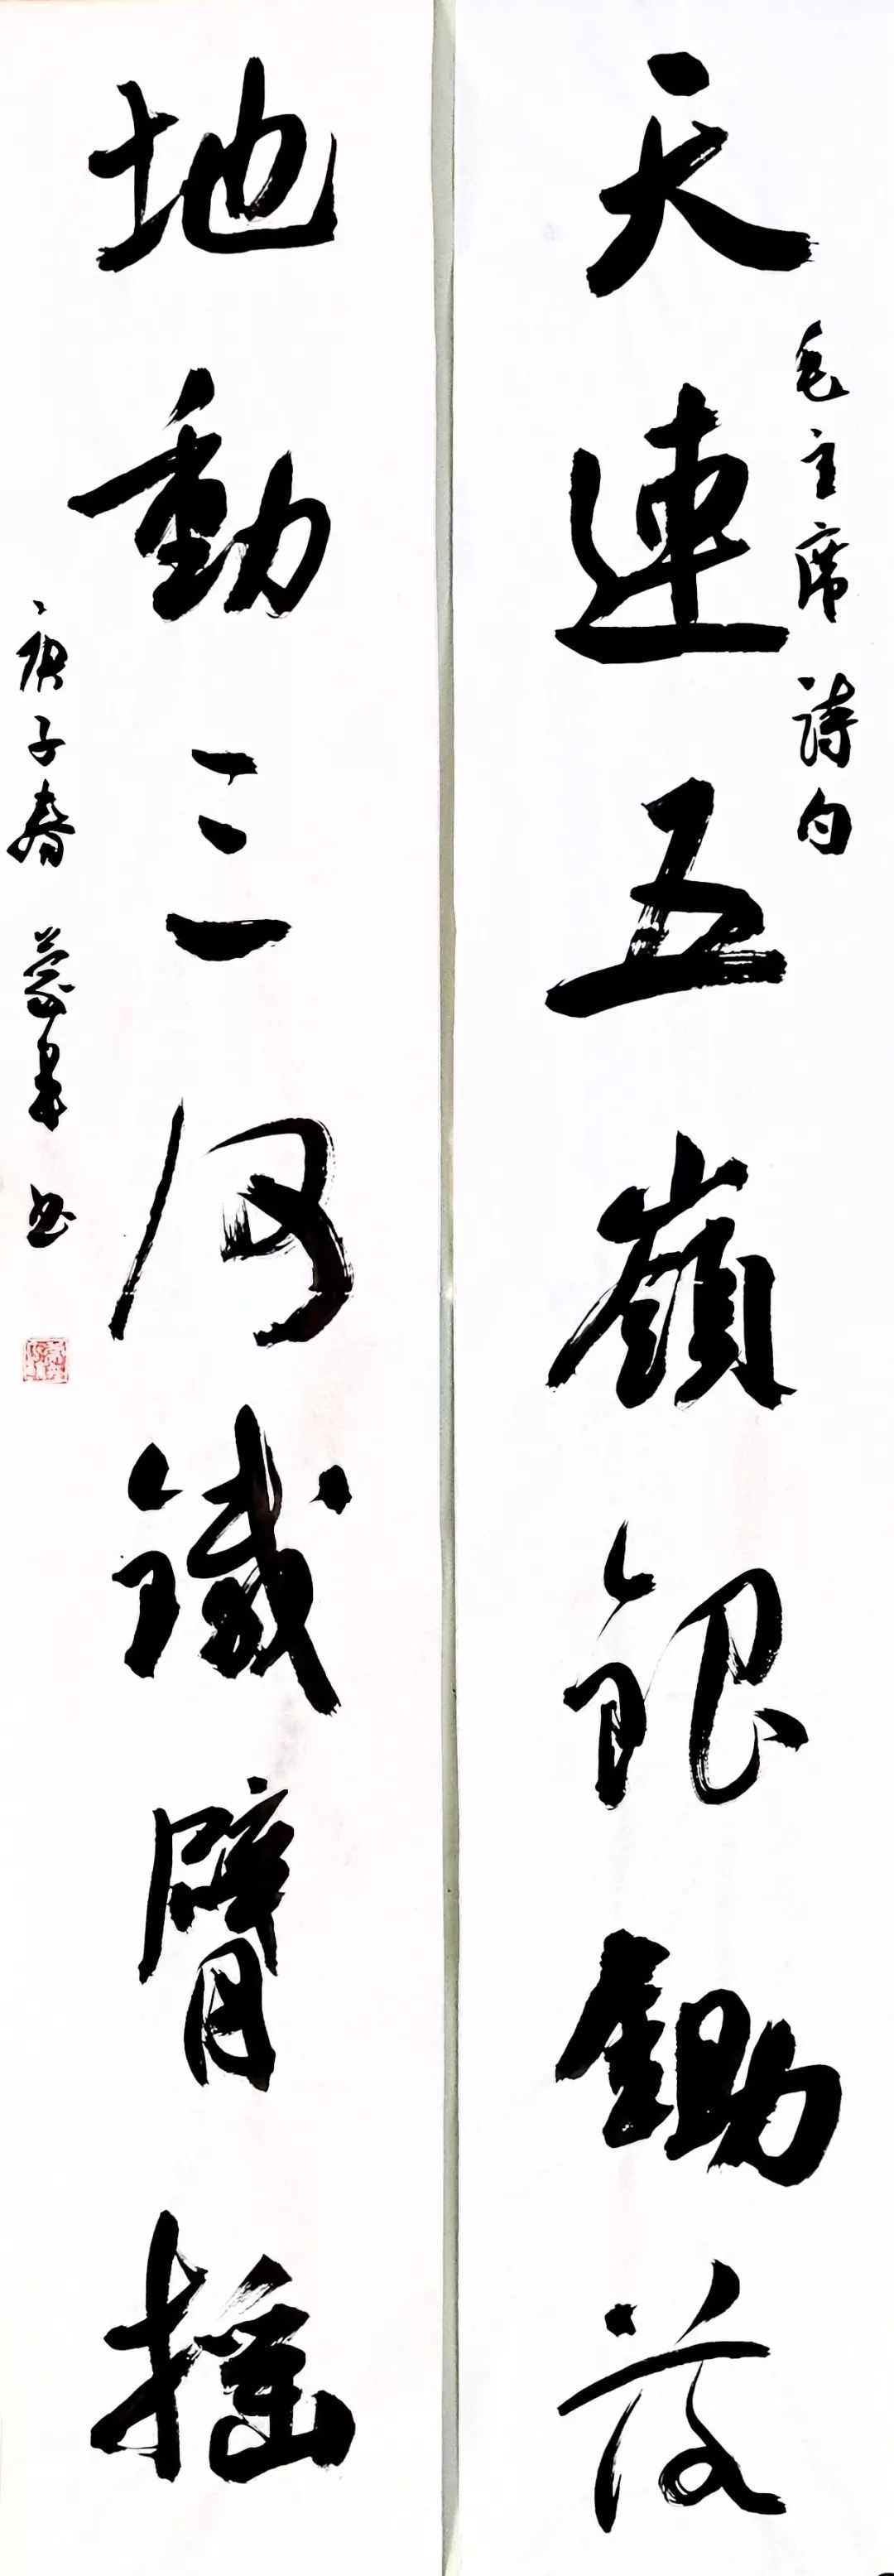 天連五嶺銀鋤落
毛主席詩句
地動三河鐵臂摇
庚子春
书